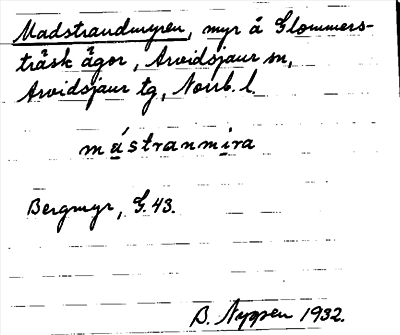 Madstrandmyren, myr å Glommers-
träsk ägor, Arvidsjaur sn,
Arvidsjaur tg, Norrb. l.
mústranmira
Bergmyr, G. 43.
B. Nyysen 1932.